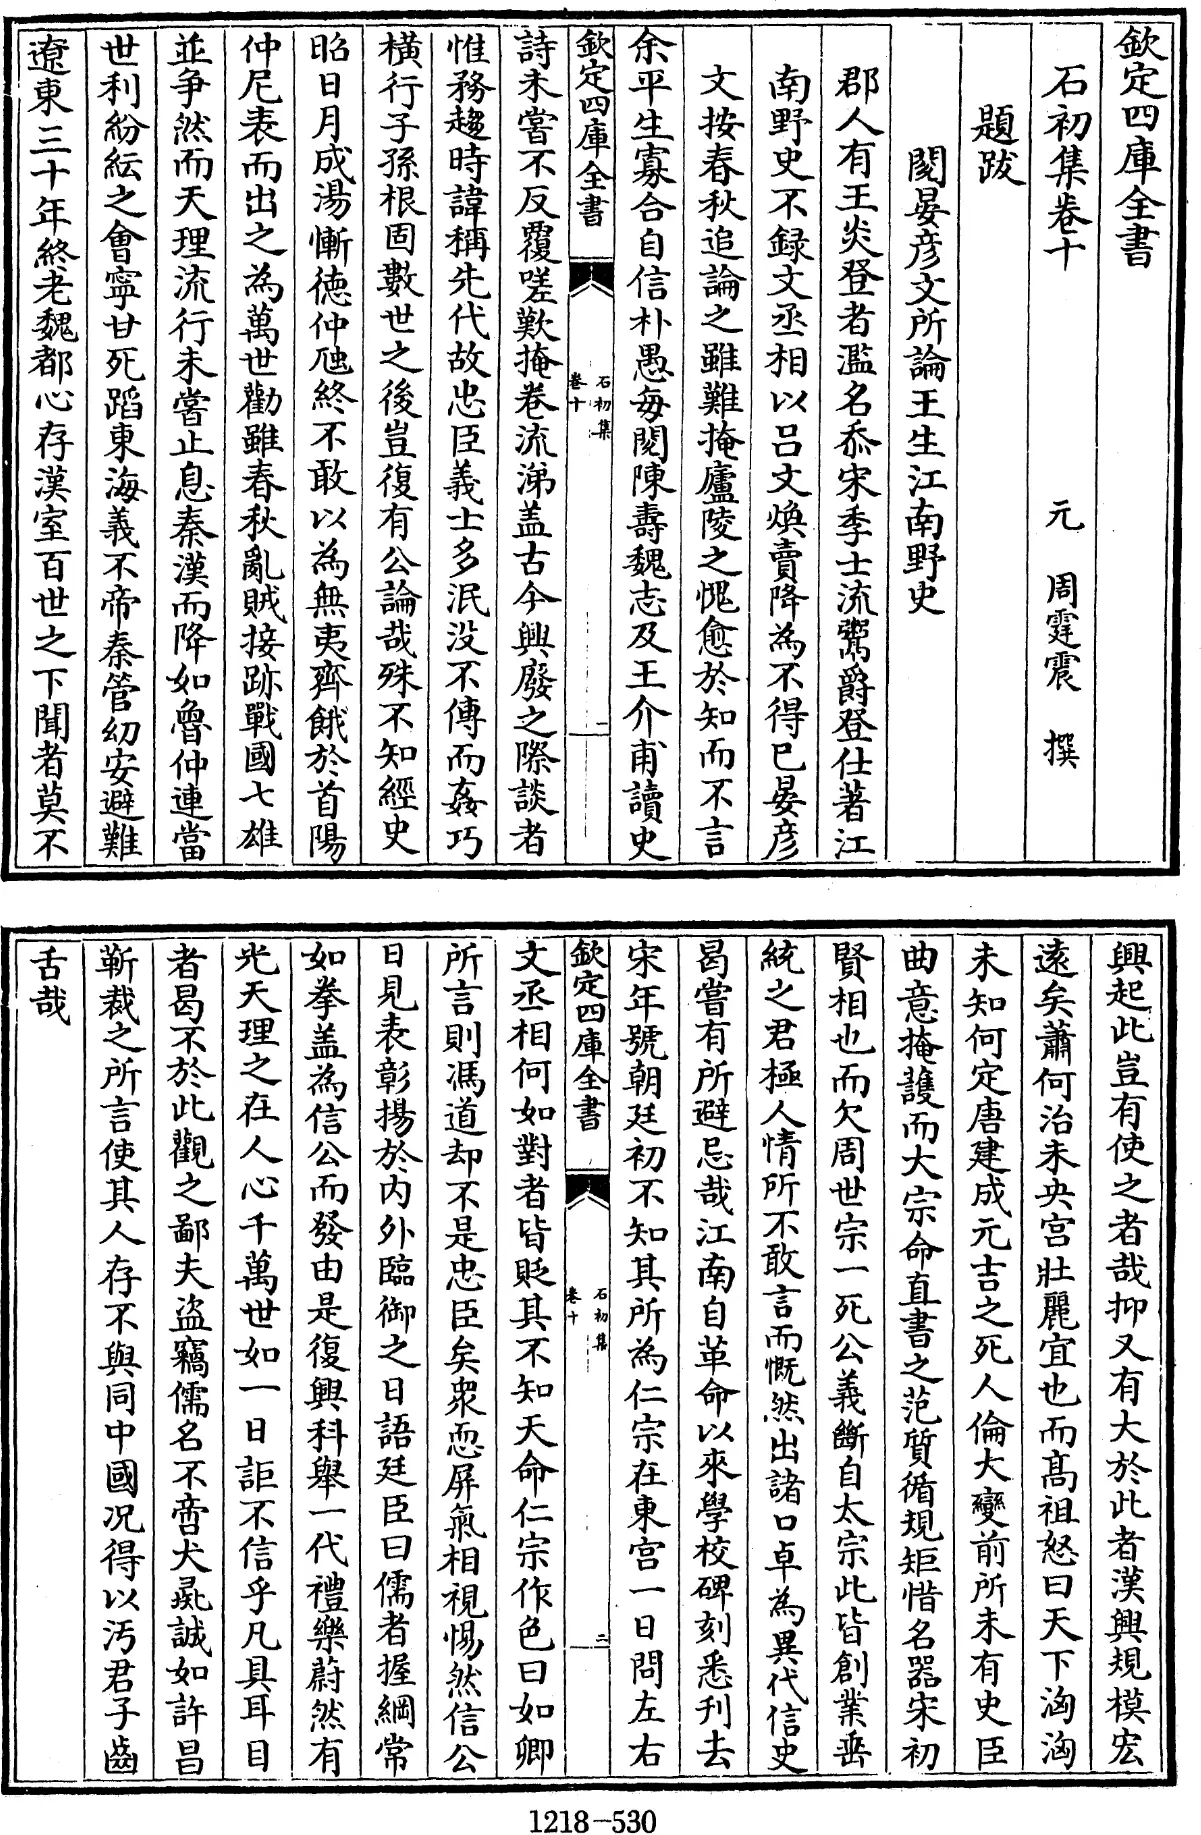 欽定四庫全書
石初集卷十
元 周霆震 撰
題跋
閱晏彦文所論王生江南野史
郡人有王炎登者濫名忝宋季士流鬻爵登仕著江
南野史不録文丞相以吕文煥賣降為不得已晏彦
文按春秋追論之雖難掩廬陵之愧愈於知而不言
余平生寡合自信朴愚每閱陳壽魏志及王介甫讀史
欽定四庫全書
石初集
卷十
一
詩未嘗不反覆嗟歎掩卷流涕盖古今興廢之際談者
惟務趨時諱稱先代故忠臣義士多泯没不傳而姦巧
橫行子孫根固數世之後豈復有公論哉殊不知經史
昭日月成湯慚徳仲虺終不敢以為無夷齊餓於首陽
仲尼表而出之為萬世勸雖春秋亂賊接跡戰國七雄
並争然而天理流行未嘗止息秦漢而降如魯仲連當
世利紛紜之會寧甘死蹈東海義不帝秦管幼安避難
遼東三十年終老魏都心存漢室百世之下聞者莫不
興起此豈有使之者哉抑又有大於此者漢興規模宏
遠矣蕭何治未央宫壯麗宜也而髙祖怒曰天下洶洶
未知何定唐建成元吉之死人倫大變前所未有史臣
曲意掩護而大宗命直書之范質循規矩惜名器宋初
賢相也而欠周世宗一死公義斷自太宗此皆創業垂
統之君極人情所不敢言而慨然出諸口卓為異代信史
曷嘗有所避忌哉江南自革命以來學校碑刻悉刋去
宋年號朝廷初不知其所為仁宗在東宫一日問左右
欽定四庫全書
石初集
卷十
二
文丞相何如對者皆貶其不知天命仁宗作色曰如卿
所言則馮道却不是忠臣矣衆恧屏氣相視惕然信公
日見表彰揚於内外臨御之日語廷臣曰儒者握綱常
如拳盖為信公而發由是復興科舉一代禮樂蔚然有
光天理之在人心千萬世如一日詎不信乎凡具耳目
者曷不於此觀之鄙夫盗竊儒名不啻犬彘誠如許昌
靳裁之所言使其人存不與同中國况得以汚君子齒
舌哉
1218-530